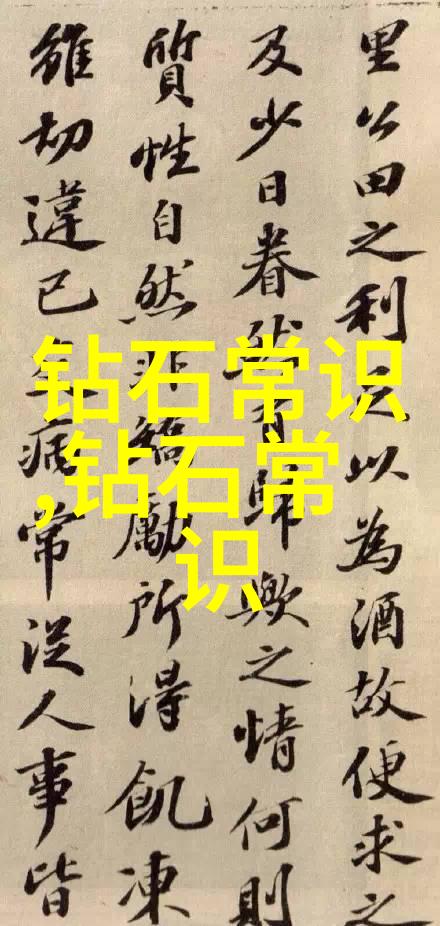 里公田之利足以為酒故便求之
及少日眷然有歸歟之情何則
質性自然非矯勵所得飢凍
雖切違己交病常從人事皆
钻石常识
,钻石常
识